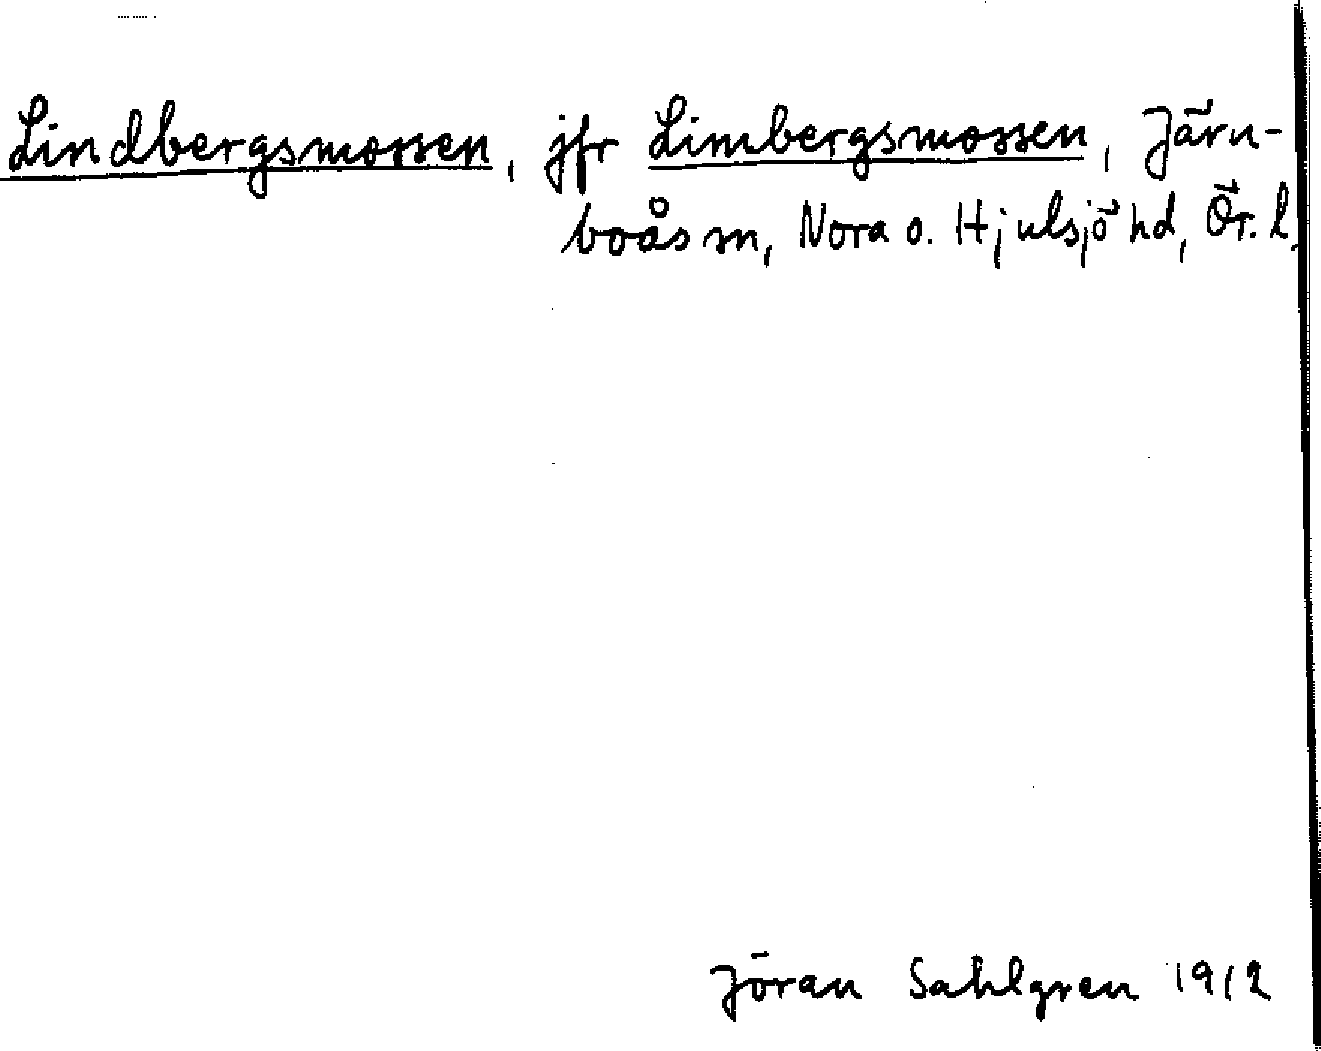 Lindbergsmossen, jfr Limbergsmossen, Järn-
boås sn, Nora o. Hjulsjö hd, Ör. l.
Jöran Sahlgren 1912